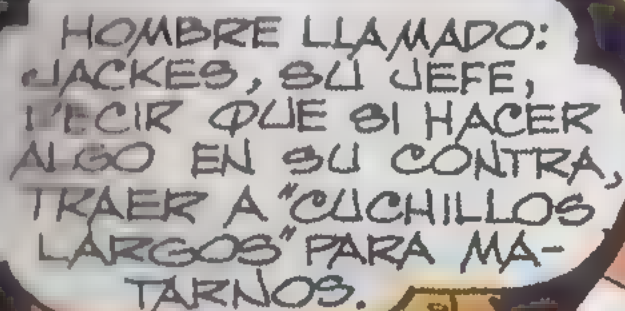 HOMBRE LLAMADO:
JACKES, SU JEFE,
DECIR QUE SI HACER
ALGO EN SU CONTRA,
TRAER A "CUCHILLOS
LARGOS" PARA MA-
TARNOS.